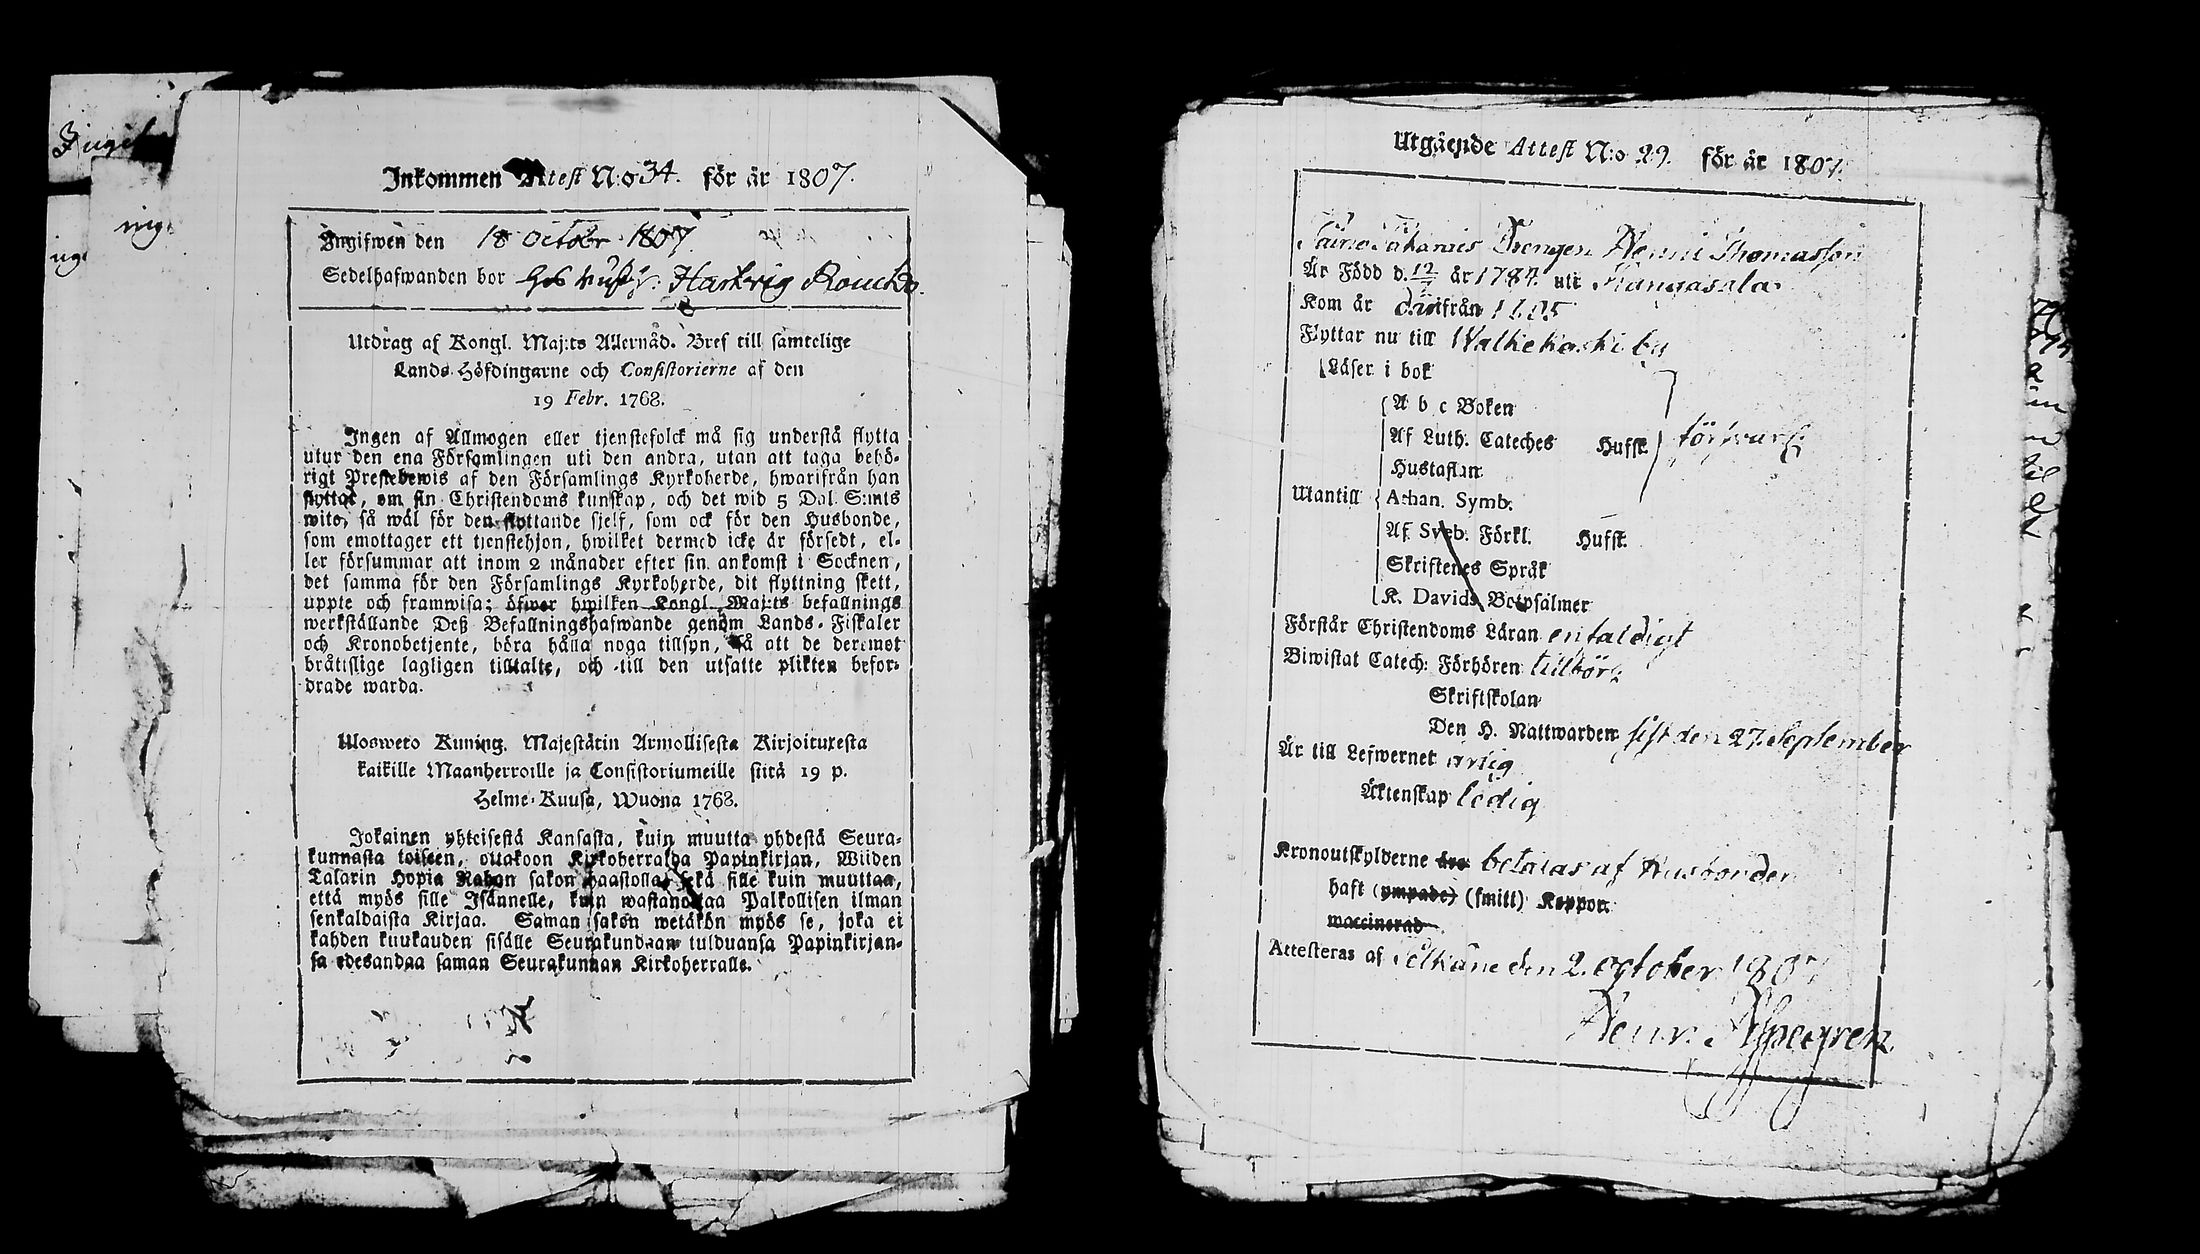 Inkommen Attest N:o 34. för år 1807.
Ingifwen den 18 octobr 1807
Sedelhafwanden bor hos Hartvig
Utdrag af Kongl. Maj:ts Allernåd. Bref till samtelige
Lands-Höfdingarne och Consistorierne af den
19 Febr. 1768.
Ingen af Allmogen eller tjenstefolck må sig understå flytta
utur den ena Församlingen uti den andra, utan att taga behö-
rigt Prestebewis af den Församlings Kyrkoherde, hwarifrån han
flyttat, om sin Christendoms kunskap, och det wid 5 Dal. S:mts
wite, så wäl för den flyttande sjelf, som ock för den Husbonde,
som emottager ett tjenstehjon, hwilket dermed icke är försedt, el-
ler försummar att inom 2 månader efter sin ankomst i Socknen,
det samma för den Församlings Kyrkoherde, dit flyttning skett,
uppte och framwisa; öfwer hwilken Kongl. Maj:ts befallnings
werkställande Deß Befallningshafwande genom Lands-Fiskaler
och Kronobetjente, böra hålla noga tillsyn, så att de deremot
bråttslige lagligen tilltalte, och till den utsatte plikten befor-
drade warda.
Ulosweto Kuning. Majestätin Armollisesta Kirjoituxesta
kaikille Maanherroille ja Consistoriumeille siitä 19 p.
Helme-Kuusa, Wuona 1768.
Jokainen yhteisestä Kansasta, kuin muutta yhdestä Seura-
kunnasta toiseen, ottakoon Kirkoherralda Papinkirjan, Wiiden
Talarin Hopia Rahan sakon haastolla, sekä sille kuin muuttaa,
että myös sille Isännelle, kuin wastanottaa Palkollisen ilman
senkaldaista Kirjaa. Saman sakon wetäkön myös se, joka ei
kahden kuukauden sisälle Seurakundaan tulduansa Papinkirjan-
sa edesandaa saman Seurakunnan Kirkoherralle.
Utgående Attest N:o 29. för år 1807.
Drengen Henric Thomasson
År Född d. 12 år 1784. uti Kangasala
Kom år därifrån 1805
Flyttar nu till Walkekoski by
Läser i bok
A b c Boken
Af Luth. Cateches Hufst. försvarl:
Hustaflan
Utantill Athan. Symb.
Af Sveb. Förkl. Hufst.
Skriftenes Språk
K. Davids Botpsalmer
Förstår Christendoms Läran enfaldigt
Biwistat Catech: Förhören tillbörl:
Skriftskolan
Den H. Nattwarden sist den 27. September
Är till Lefwernet ärlig
Äktenskap ledig
Kronoutskylderne äro betalas af Husbonden
haft (ympade) (smitt) Koppor.
waccinerad
Attesteras af Pelkäne den 2. october 1807
Henr. Aspegren